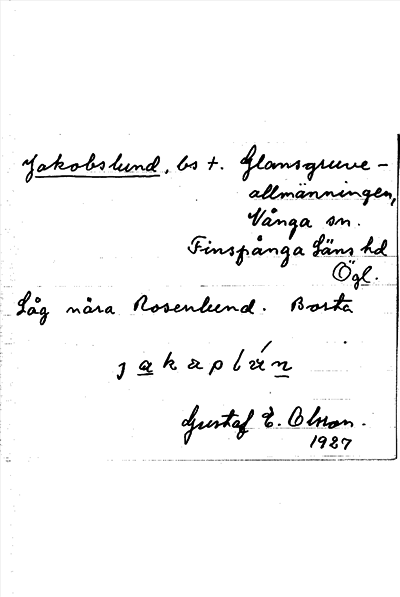 Jakobslund, bs t. Glansgruve-
allmänningen,
Vånga sn.
Finspånga Läns hd
Ögl.
Låg nära Rosenlund. Borta
jakaplán
Gustaf E. Olsson.
1927